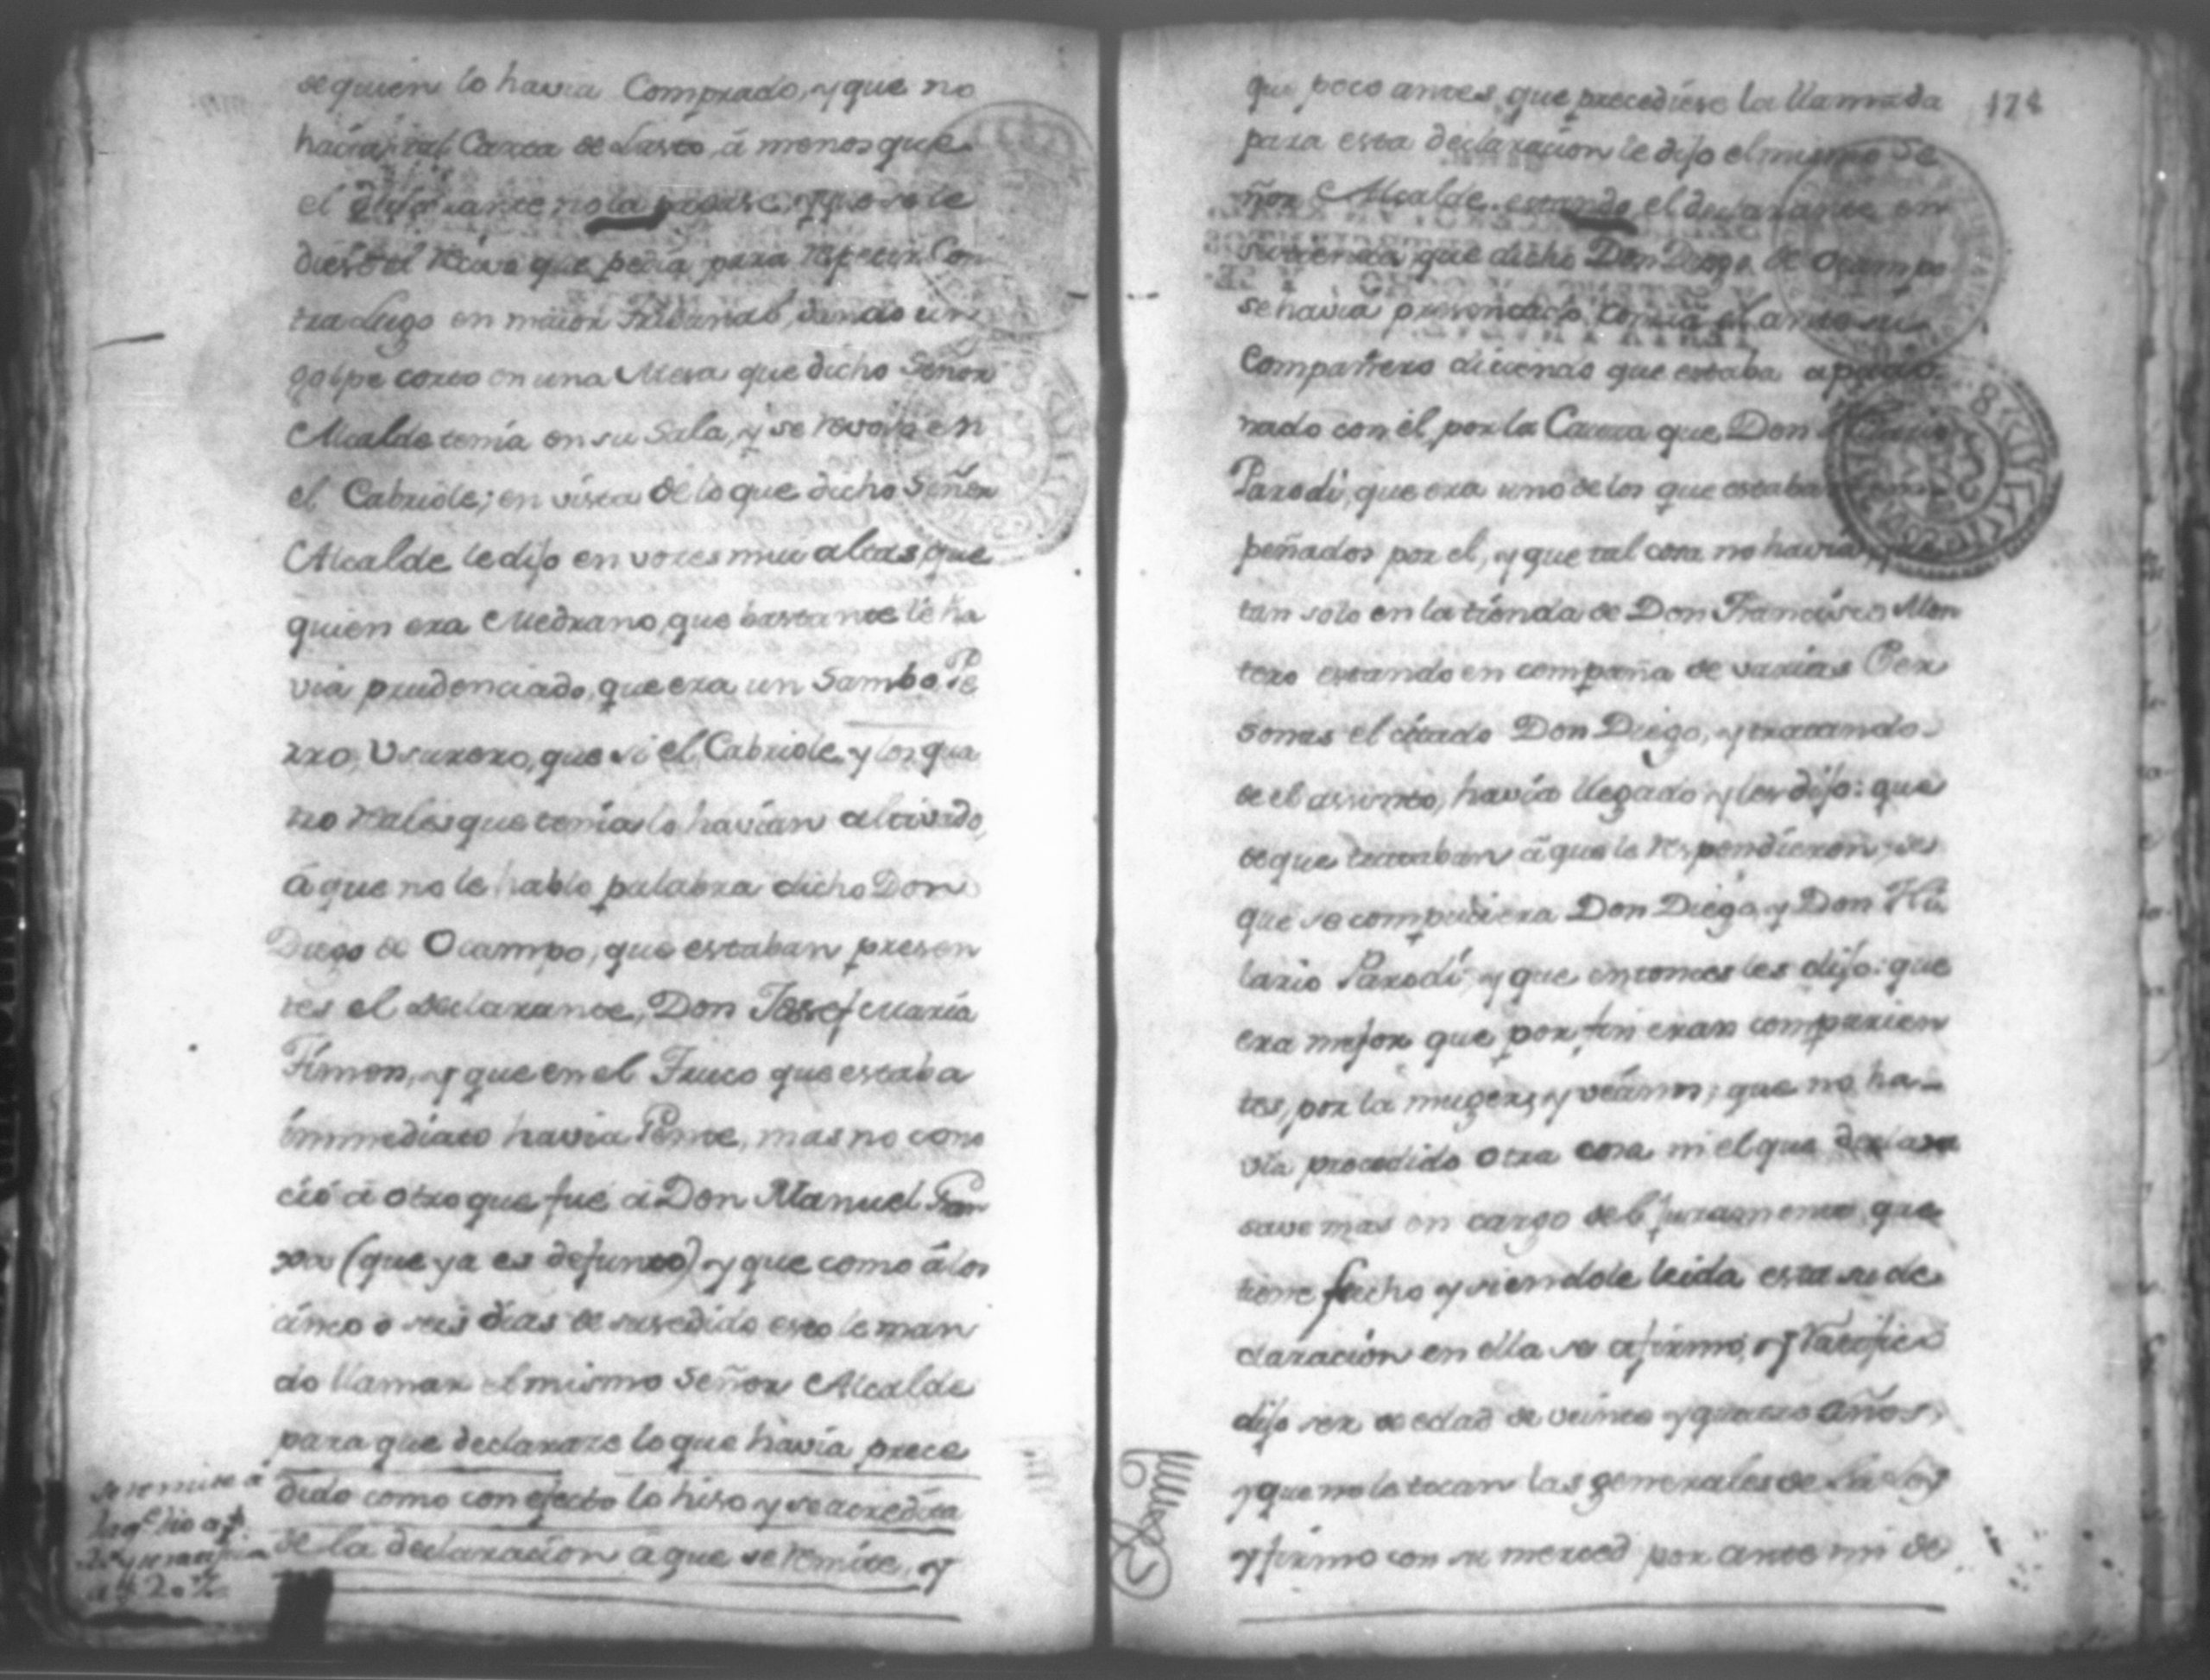 de quien lo havia Comprado, y que no
havia tal Carta de Lasto, á menos que
el no la
diese el que pedia para repetir Con
tra Lugo en maior Tribunal, dando un
golpe corto en una Mesa que dicho Señor
Alcalde tenia en su Sala, y se revolvió en
el Cabriole; en vista de lo que dicho Señor
Alcalde le dijo en vozes mui altas, que
quien era Medrano, que bastante le ha
via prudenciado, que era un Sambo Pe
rro, Usurero, que si el Cabriole, y los qua
tro reales que tenia lo havian altivado,
á que no le hablo palabra dicho Don
Diego de Ocampo, que estaban presen
tes el declarante, Don Jossef Maria
Fimon, y que en el Truco que estaba
immediato havia Gente, mas no cono
ció á otro que fué á Don Manuel
(que ya es defunto) y que como á los
cinco o seis dias de susedido esto le man
do llamar el mismo Señor Alcalde
para que declarare lo que havia prece
dido como con efecto lo hiso y se acredita
de la declaracion a que se remite, y
se remite á
la q.e dio a f.
20
174
que poco antes, que precediese la llamada
para esta declaracion le dijo el mismo Se
ñor Alcalde estando el declarante en
su tienda, que dicho Don Diego de Ocampo
se havia presentado contra el ante su
Compañero diciendo que estaba apacio
nado con él, por la Causa que Don
Parodi, que era uno de los que estaban
peñados por el, y que tal cosa no havia, que
tan solo en la tienda de Don Francisco Mon
tero estando en compaña de varias Per
sonas el citado Don Diego, y tratando
de el assunto, havia llegado y les dijo: que
de que trataban á que le respondieron, de
que se compusiera Don Diego, y Don Hi
lario Parodi, y que entonces les dijo: que
era mejor que por fin eran comparien
tes, por la muger, y veamos; que no ha
via precedido otra cosa ni el que declara
save mas en cargo del juramento que
tiene fecho y siendole leida esta su de
claracion en ella se afirmó, y ratificó
dijo ser de edad de veinte y quatro años,
y que no le tocan las generales de la Ley
y firmo con su merced por ante mi de